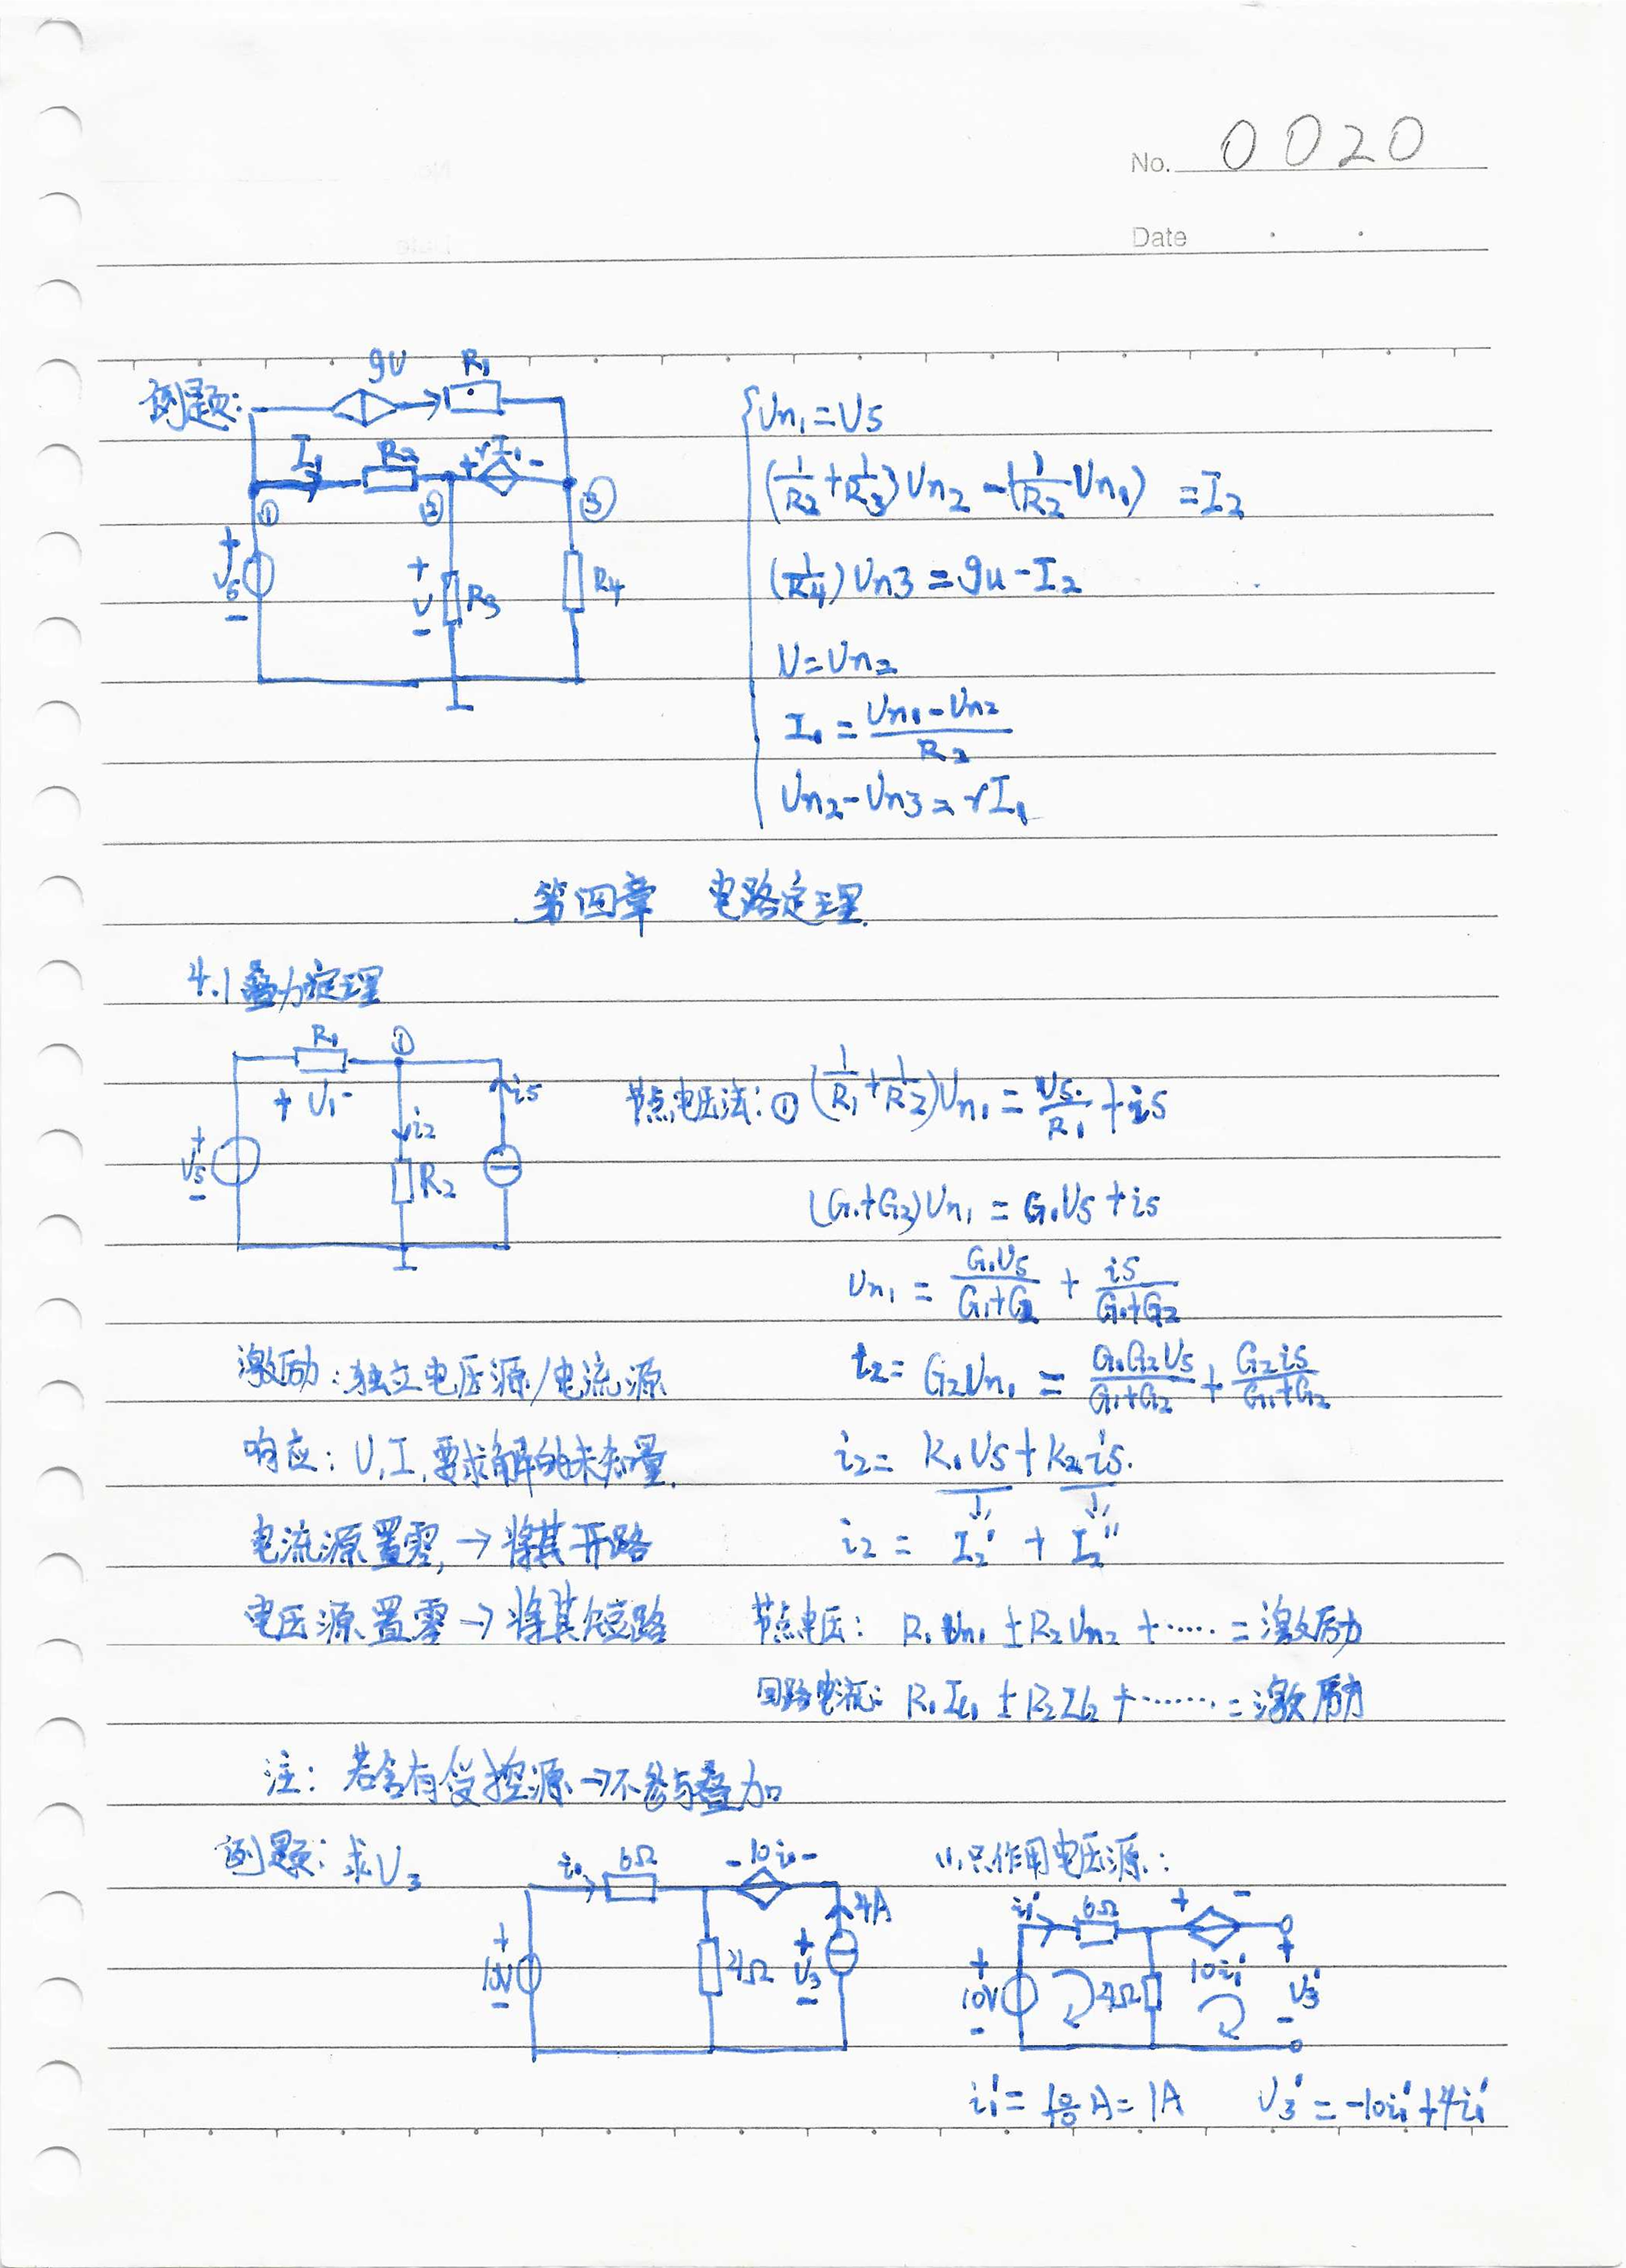 No. 0020
Date
例题:
gU R₁
I₁ R₂ + rI₁ -
① ② ③
+ Us -
+ U - R₃ R₄
Un₁=Us
(1/R₂+1/R₃)Un₂-(1/R₂ Un₁) =I₂
(1/R₄)Un3=gu-I₂
U=Un₂
I₁=(Un₁-Un₂)/R₂
Un₂-Un3=rI₁
第四章 电路定理.
4.1叠力定理
R₁ ①
+ U₁- is
i₂
+ Us - R₂
节点电压法:① (1/R₁+1/R₂)Un₁=Us/R₁+is
(G₁+G₂)Un₁=G₁Us+is
Un₁=G₁Us/(G₁+G₂)+is/(G₁+G₂)
激励:独立电压源/电流源
i₂=G₂Un₁=G₁G₂Us/(G₁+G₂)+G₂is/(G₁+G₂)
响应:U,I,要求解的未知量.
i₂=K₁Us+K₂is.
电流源置零,→将其开路
i₂=I₂'+I₂''
电压源置零→将其短路
节点电压:R₁Un₁±R₂Un₂+……=激励
回路电流:R₁Il₁±R₂Il₂+……=激励
注:若含有受控源→不参与叠加
例题:求U₃
i₁ 6Ω -10i₁-
4A
+ 10V - 4Ω + U₃ -
(1)只作用电压源:
i₁' 6Ω + -
+ 10V - 4Ω 10i₁' + U₃' -
i₁'=10/10 A=1A U₃'=-10i₁'+4i₁'